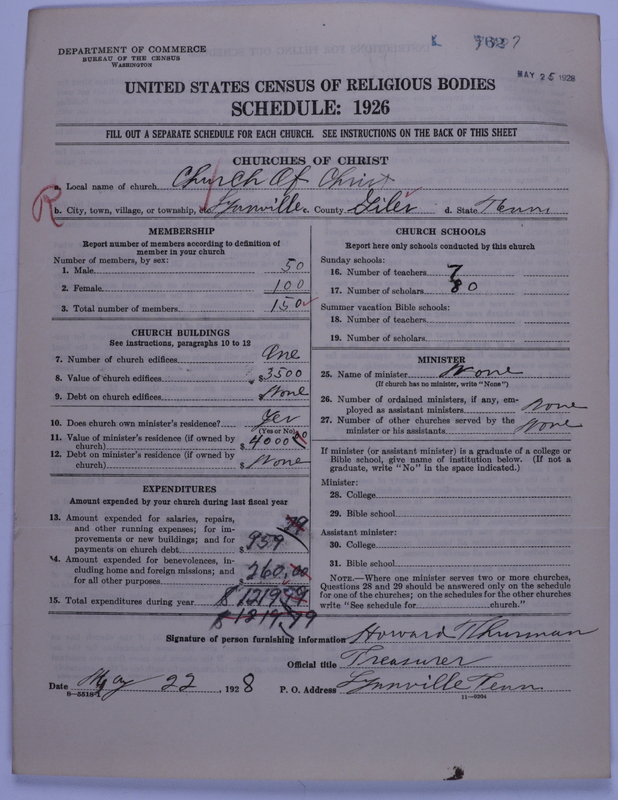 DEPARTMENT OF COMMERCE
BUREAU OF THE CENSUS
WASHINGTON
MAY 25 1928
UNITED STATES CENSUS OF RELIGIOUS BODIES
SCHEDULE: 1926
FILL OUT A SEPARATE SCHEDULE FOR EACH CHURCH. SEE INSTRUCTIONS ON THE BACK OF THIS SHEET
CHURCHES OF CHRIST
R
a. Local name of church Church Of Christ
b. City, town, village, or township, etc. Lynnville c. County Giles d. State Tenn
MEMBERSHIP
Report number of members according to definition of
member in your church
Number of members, by sex:
1. Male 50
2. Female 100
3. Total number of members 150
CHURCH BUILDINGS
See instructions, paragraphs 10 to 12
7. Number of church edifices One
8. Value of church edifices $ 3500
9. Debt on church edifices $ None
10. Does church own minister's residence? Yes
(Yes or No)
11. Value of minister's residence (if owned by
church) $ 4000 00
12. Debt on minister's residence (if owned by
church) $ None
EXPENDITURES
Amount expended by your church during last fiscal year
13. Amount expended for salaries, repairs,
and other running expenses; for im-
provements or new buildings; and for
payments on church debt $ 959 79
14. Amount expended for benevolences, in-
cluding home and foreign missions; and
for all other purposes $ 260.00
15. Total expenditures during year $ 1219 79
$ 1219.79
CHURCH SCHOOLS
Report here only schools conducted by this church
Sunday schools:
16. Number of teachers 7
17. Number of scholars 80
Summer vacation Bible schools:
18. Number of teachers
19. Number of scholars
MINISTER
25. Name of minister None
(If church has no minister, write "None")
26. Number of ordained ministers, if any, em-
ployed as assistant ministers none
27. Number of other churches served by the
minister or his assistants none
If minister (or assistant minister) is a graduate of a college or
Bible school, give name of institution below. (If not a
graduate, write "No" in the space indicated.)
Minister:
28. College
29. Bible school
Assistant minister:
30. College
31. Bible school
NOTE.—Where one minister serves two or more churches,
Questions 28 and 29 should be answered only on the schedule
for one of the churches; on the schedules for the other churches
write "See schedule for church."
Signature of person furnishing information Howard Thurman
Official title Treasurer
Date May 22, 1928 P. O. Address Lynnville Tenn.
8—5518-1 11—9204